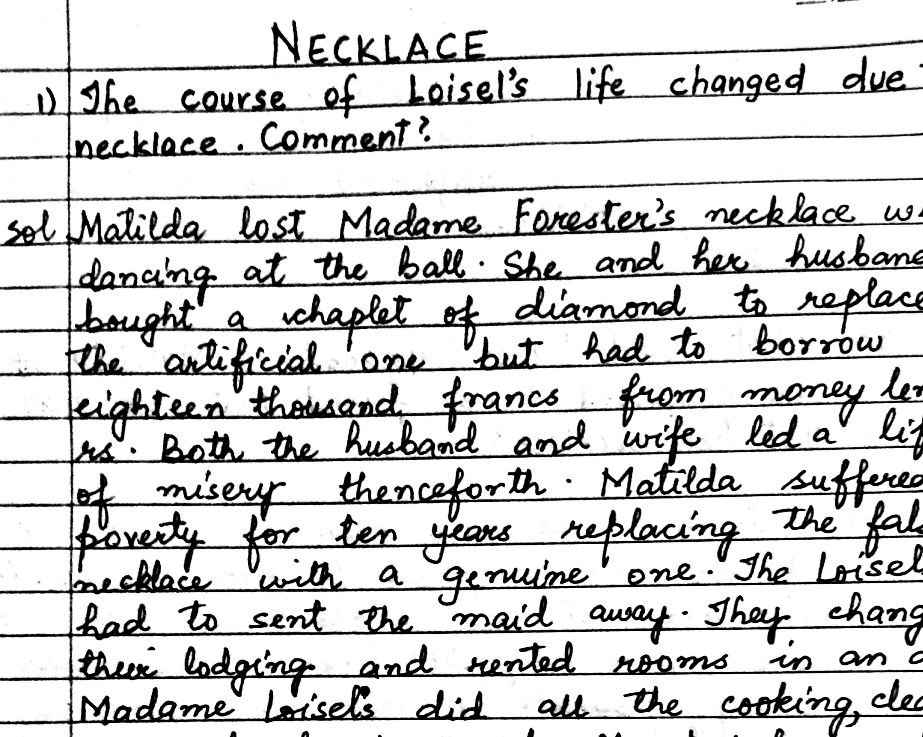 NECKLACE
1) The course of Loisel's life changed due
necklace. Comment?
sol Matilda lost Madame Forester's necklace
dancing at the ball. She and her husband
bought a chaplet of diamond to replace
the artificial one but had to borrow
eighteen thousand francs from money
rs. Both the husband and wife led a
of misery thenceforth. Matilda suffered
poverty for ten years replacing the
necklace with a genuine one. The Loisel
had to sent the maid away. They chang
their lodging and rented rooms in an
Madame Loisel's did all the cooking,